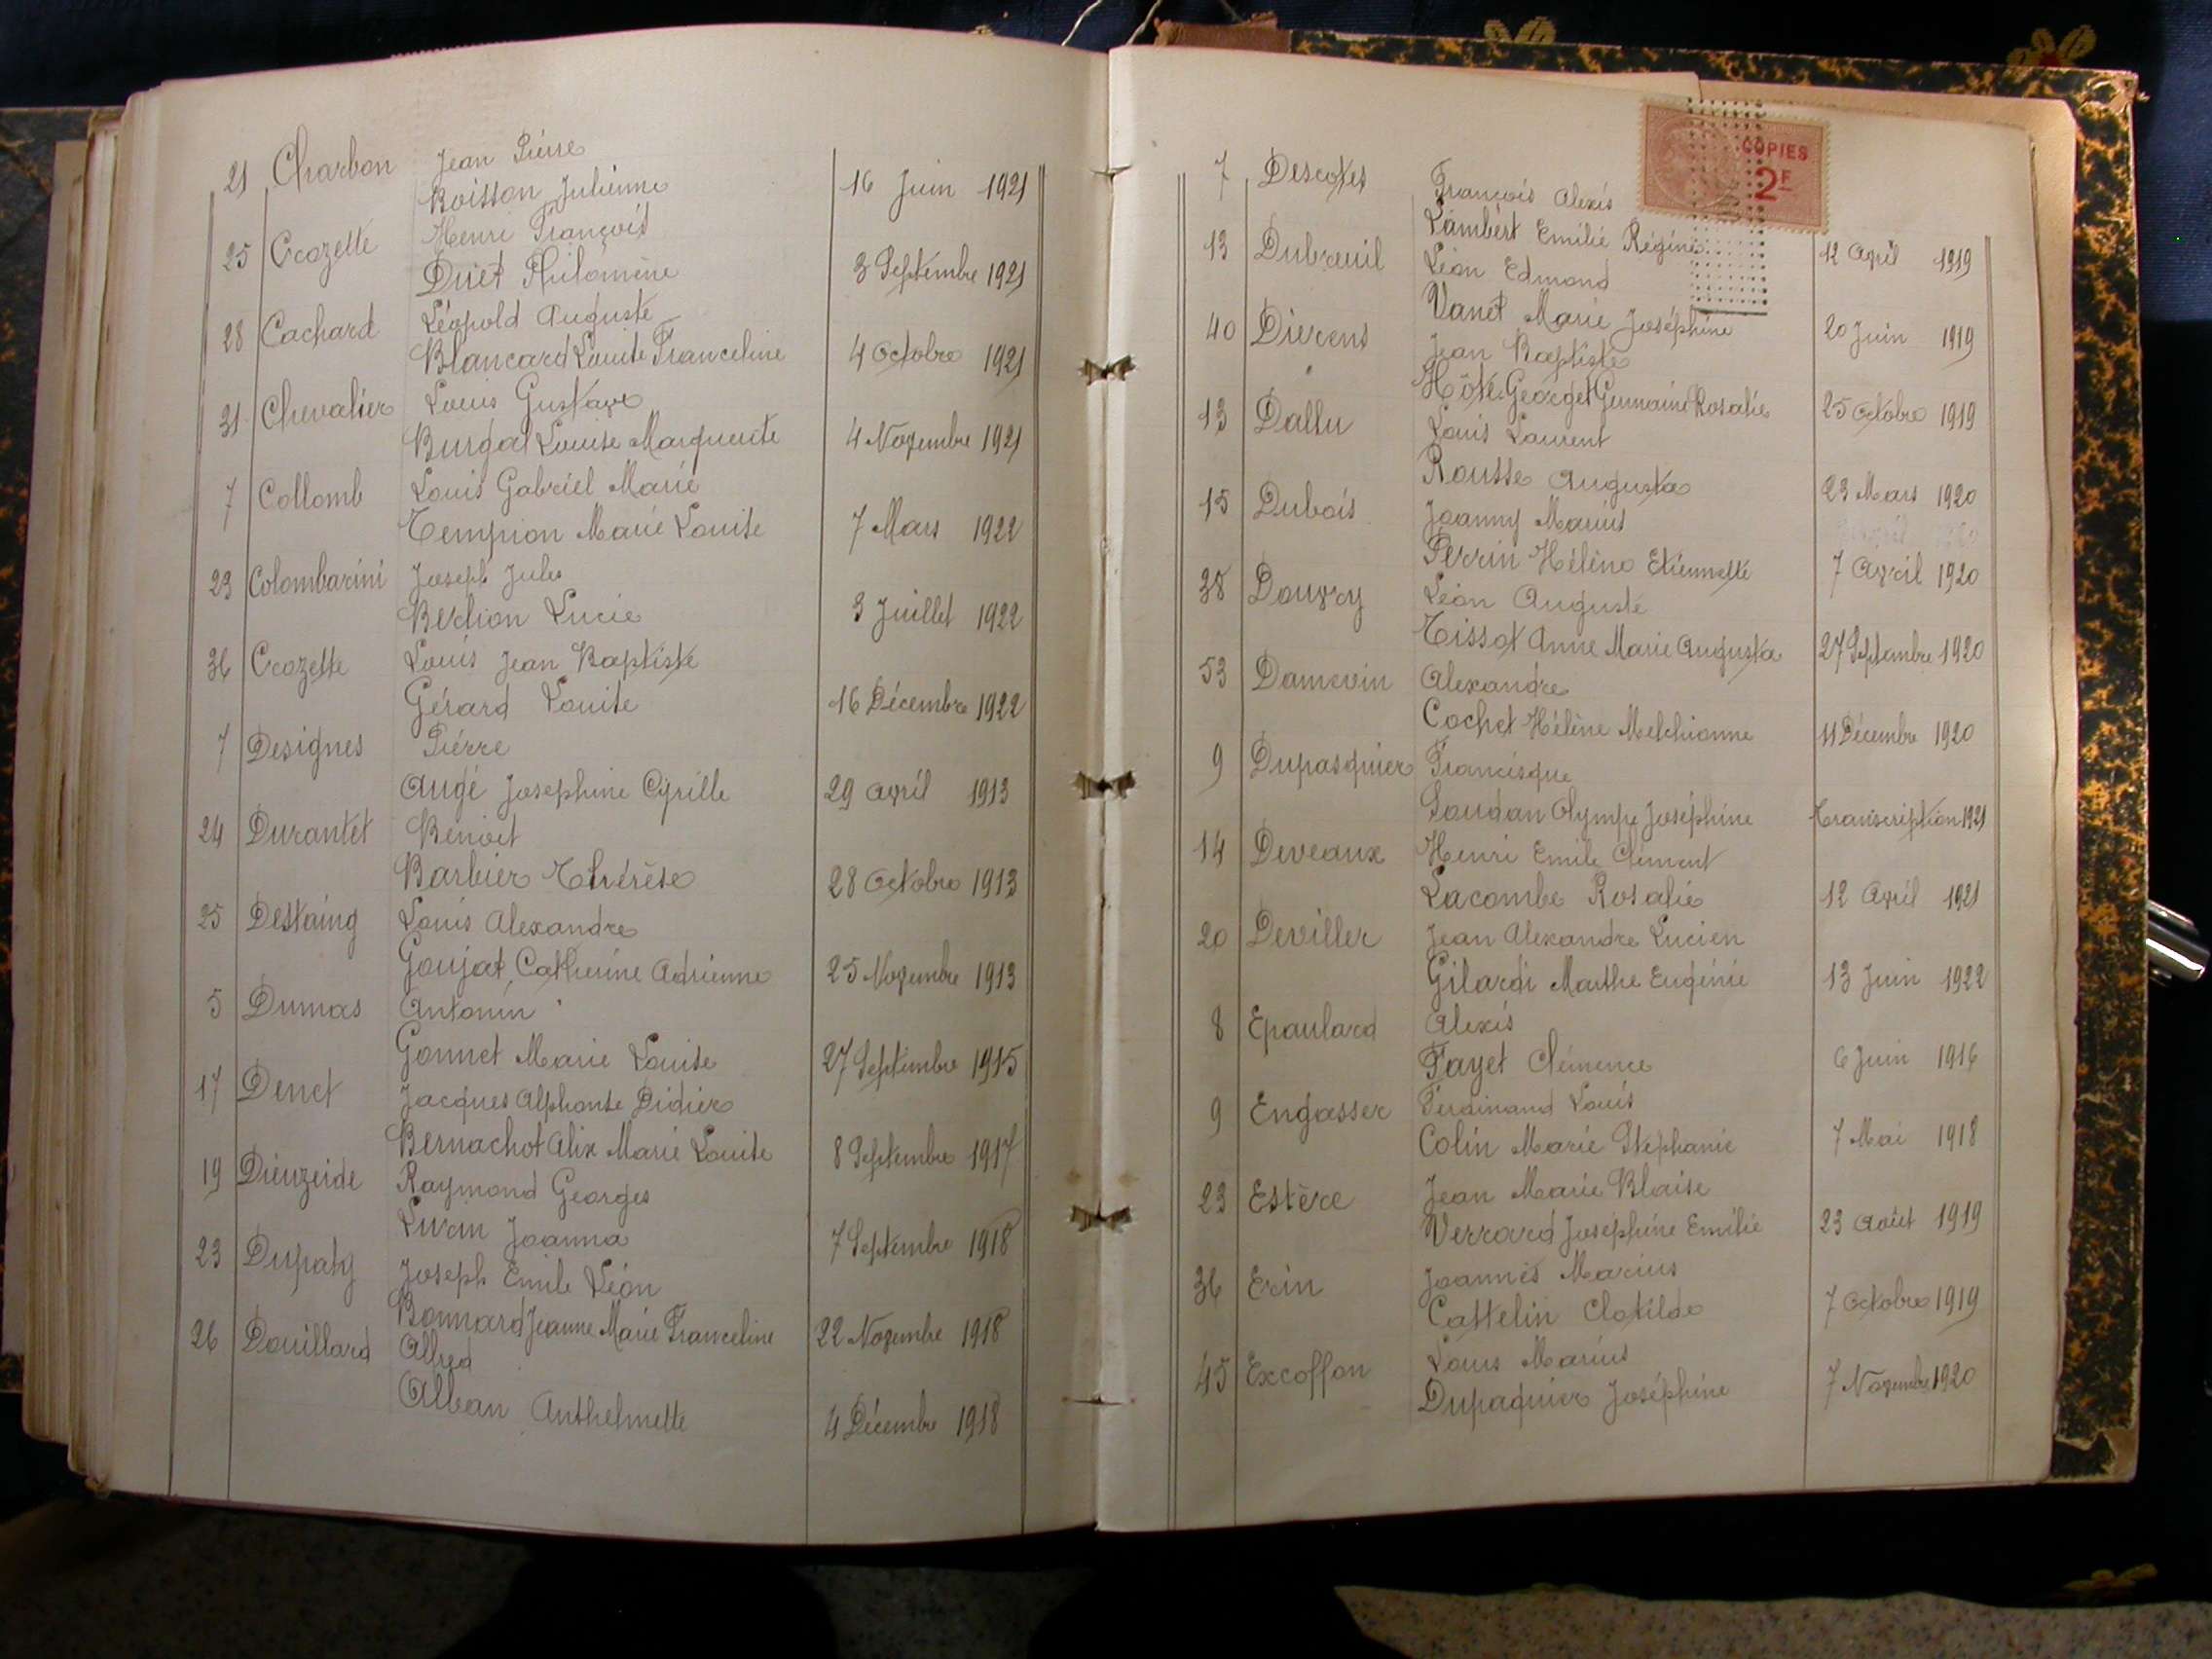 21 Charbon Jean Pierre
Boisson Julienne 16 Juin 1921
25 Crozette Henri François
Druet Philomène 3 Septembre 1921
28 Cachard Léopold Auguste
Blancard Louise Franceline 4 Octobre 1921
31 Chevalier Louis Gustave
Burgat Louise Marguerite 4 Novembre 1921
7 Collomb Louis Gabriel Marie
Tempion Marie Louise 7 Mars 1922
23 Colombarini Joseph Jules
Berlion Lucie 3 Juillet 1922
36 Crozette Louis Jean Baptiste
Gérard Louise 16 Décembre 1922
7 Désignes Pierre
Augé Josephine Cyrille 29 Avril 1913
24 Durantet Benoet
Barbier Thérèse 28 Octobre 1913
25 Destaing Louis Alexandre
Goujat, Catherine Adrienne 25 Novembre 1913
5 Dumas Antonin
Gonnet Marie Louise 27 Septembre 1915
17 Denet Jacques Alphonse Didier
Bernachot Alix Marie Louise 8 Septembre 1917
19 Dieuzeide Raymond Georges
Joanna 7 Septembre 1918
23 Dupaty Joseph Emile Léon
Bonnard Jeanne Marie Franceline 22 Novembre 1918
26 Douillard Alfred
Alban Anthelmette 4 Décembre 1918
COPIES
2F
7 Descotes François Alexis
Lambert Emilie Régine 12 Avril 1919
13 Dubreuil Léon Edmond
Vanet Marie Joséphine 20 Juin 1919
40 Jean Baptiste
Hôte Georget Germaine Rosalie 25 Octobre 1919
13 Dallu Louis Laurent
Rousse Augusta 23 Mars 1920
15 Dubois Joanny Marius
Perrin Hélène Etiennette 7 Avril 1920
38 Douvry Léon Auguste
Tissot Anne Marie Augusta 27 Septembre 1920
53 Damevin Alexandre
Cochet Hélène Melchionne 11 Décembre 1920
9 Dupasquier Francisque
Soudan Olympe Joséphine Transcription 1921
14 Deveaux Henri Emile Clément
Lacombe Rosalie 12 Avril 1921
20 Deviller Jean Alexandre Lucien
Gilardi Marthe Eugénie 13 Juin 1922
8 Epaulard Alexis
Fayet Clémence 6 Juin 1916
9 Engasser Ferdinand Louis
Colin Marie Stephanie 7 Mai 1918
23 Estère Jean Marie Blaise
Verrard Joséphine Emilie 23 Août 1919
36 Erin Joannès Marius
Castelin Clotilde 7 Octobre 1919
45 Excoffon Louis Marius
Dupaquier Joséphine 7 Novembre 1920